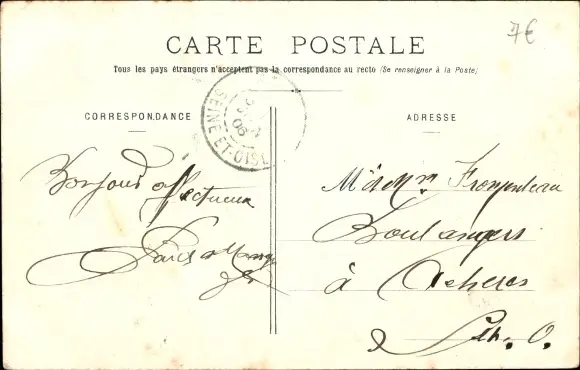 7€
CARTE POSTALE
Tous les pays étrangers n'acceptent pas la correspondance au recto (Se renseigner à la Poste)
SEINE-ET-OISE
06
CORRESPONDANCE
ADRESSE
Bonjour affectueux
Mr et Mme
Boulangers
à Achères
S. et O.